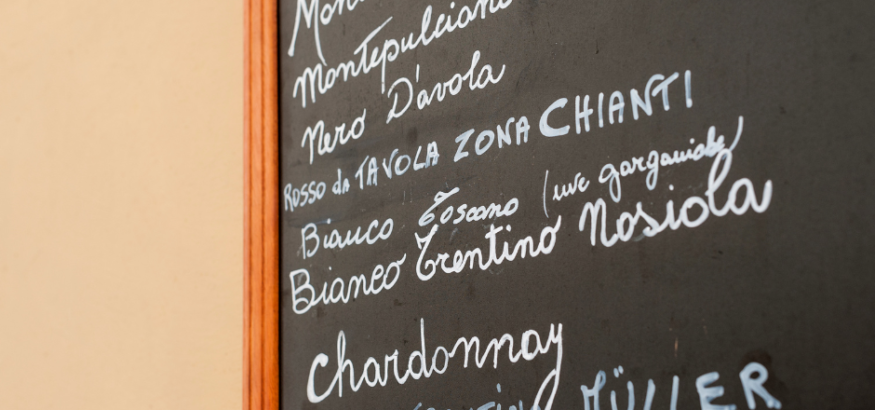 Montepulciano
Nero D'avola
ROSSO da TAVOLA ZONA CHIANTI
Bianco Toscano (uve
Bianco Trentino Nosiola
Chardonnay
MÜLLER